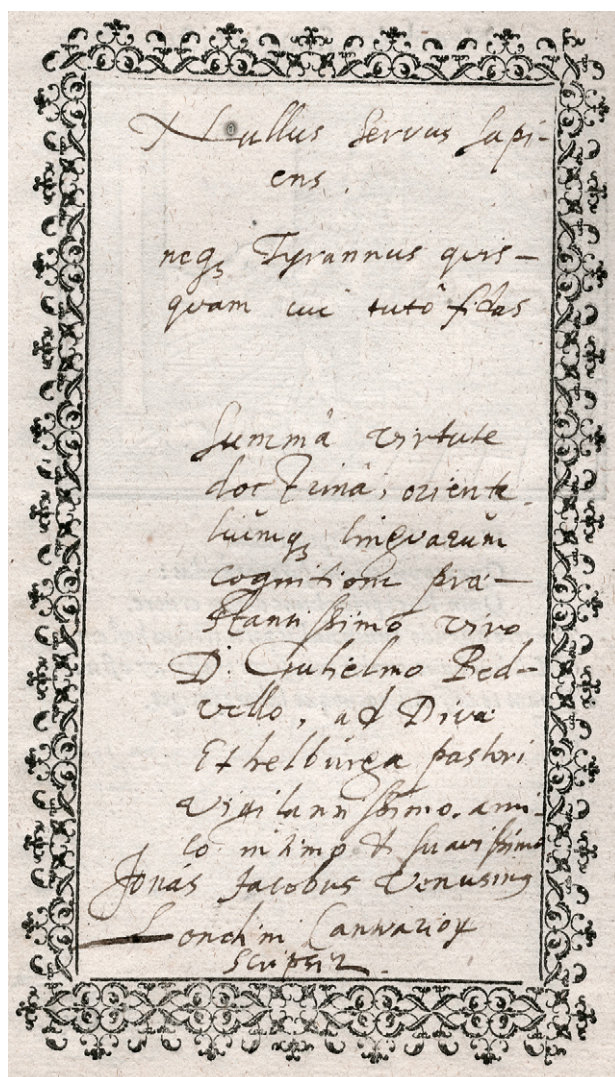 Nullus servus sapi-
ens.
neq₃ Tyrannus quis-
quam cui tutò fidas
Summâ virtute
doctrinâ, orienta-
liūmq₃ linguarum
cognitione præ-
stantissimo viro
D. Gulielmo Bed-
vello, ad Divæ
Ethelburgæ pastori
vigilantissimo. ami-
co intimo & suavissimo
Jonas Jacobus Venusinꝰ
Londini
scripsit.